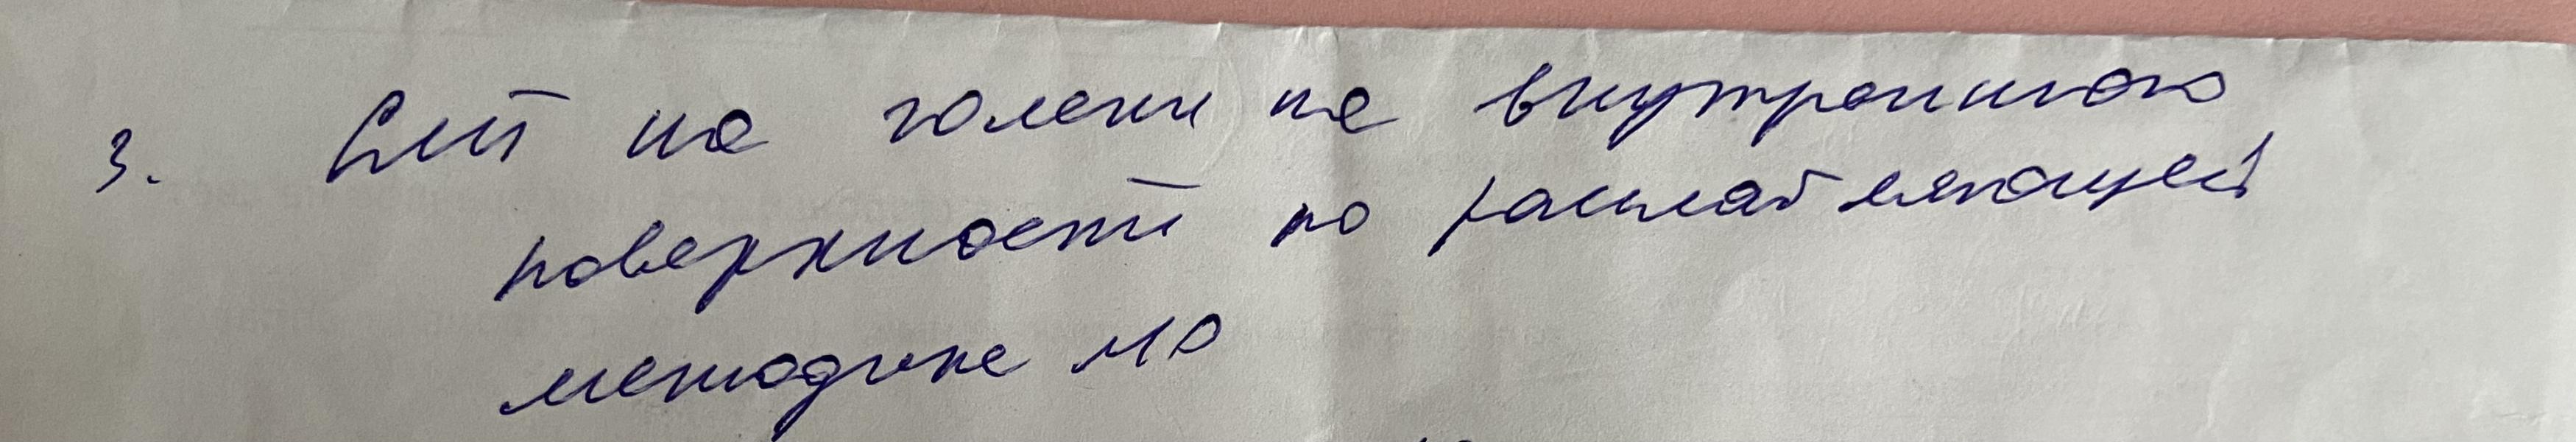 3. СМТ на голени на внутреннюю
поверхности по расслабляющей
методике №10